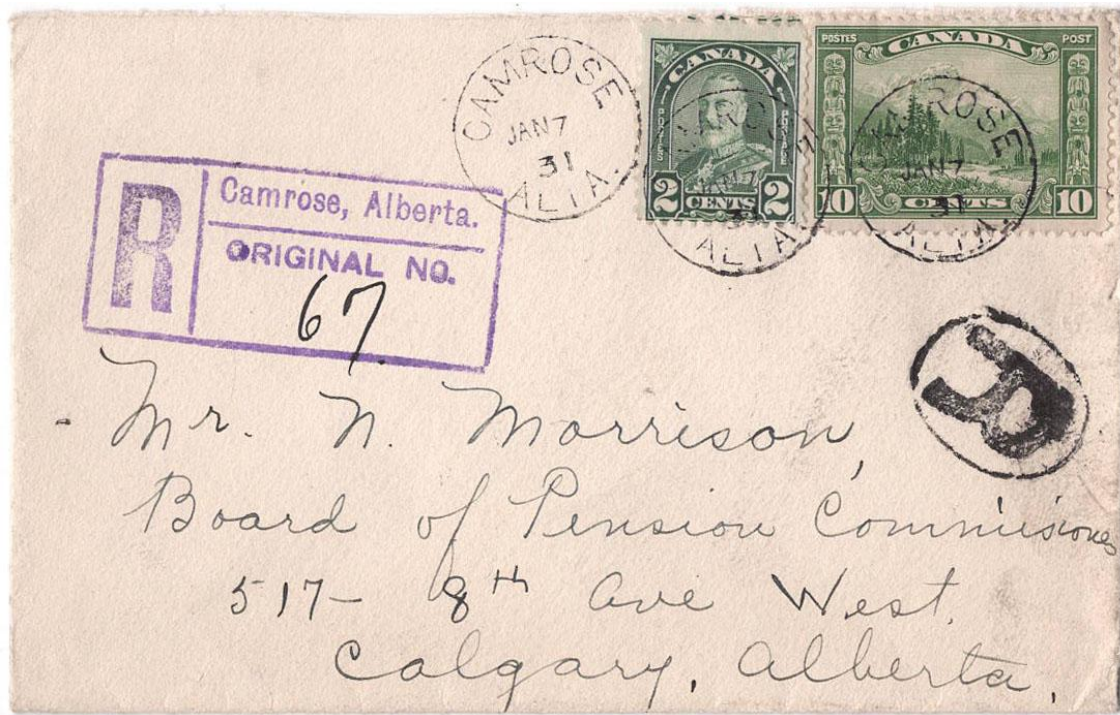 CAMROSE
JAN 7
31
ALTA.
2 CANADA 2
POSTES POSTES
2 CENTS 2
CAMROSE
JAN 7
31
ALTA.
POSTES CANADA POST
10 CENTS 10
CAMROSE
JAN 7
31
ALTA.
R
Camrose, Alberta.
ORIGINAL NO.
67.
R
Mr. N. Morrison,
Board of Pension Commisiones
517- 8TH Ave West,
Calgary, Alberta,